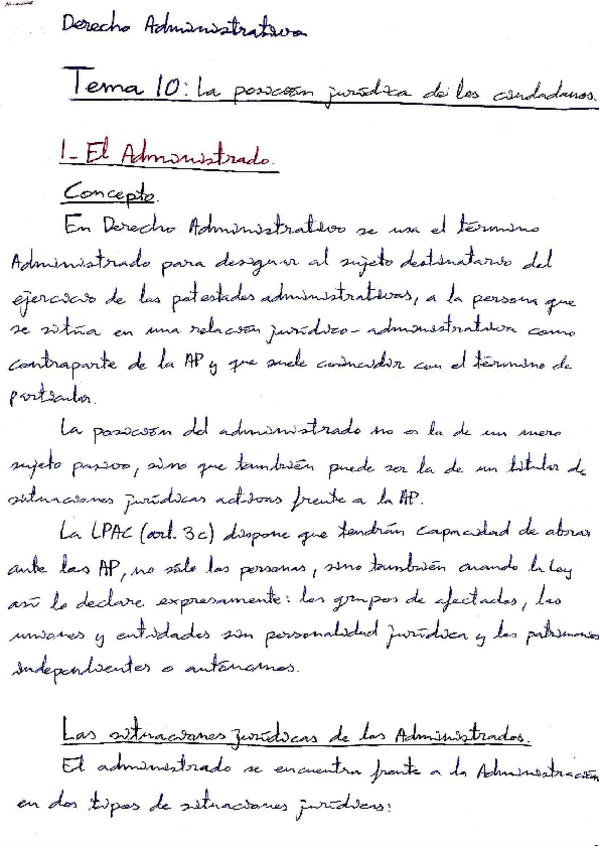 Derecho Administrativo
Tema 10: La posición jurídica de los ciudadanos.
1- El Administrado.
Concepto.
En Derecho Administrativo se usa el término
Administrado para designar al sujeto destinatario del
ejercicio de las potestades administrativas, a la persona que
se sitúa en una relación jurídico-administrativa como
contraparte de la AP y que suele coincidir con el término de
particular.
La posición del administrado no es la de un mero
sujeto pasivo, sino que también puede ser la de un titular de
situaciones jurídicas activas frente a la AP.
La LPAC (art. 3c) dispone que tendrán capacidad de obrar
ante las AP, no sólo las personas, sino también cuando la Ley
así lo declare expresamente: los grupos de afectados, las
uniones y entidades sin personalidad jurídica y los patrimonios
independientes o autónomos.
Las situaciones jurídicas de los Administrados.
El administrado se encuentra frente a la Administración
en dos tipos de situaciones jurídicas: